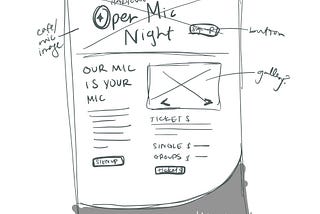 Open Mic
Night
cafe/
mic
image
button
OUR MIC
IS YOUR
MIC
gallery?
TICKETS
SINGLE $
GROUPS $
sign up
tickets